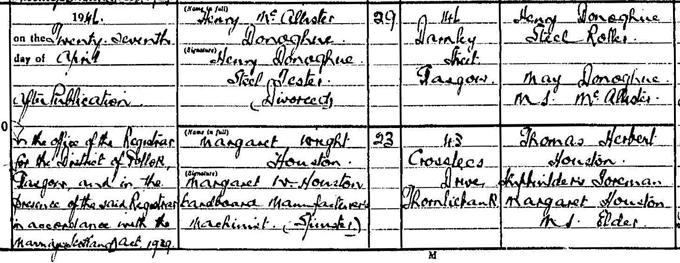 1946.
on the Twenty-Seventh
day of April
After Publication
In the office of the Registrar
for the District of Pollok,
Glasgow, and in the
presence of the said Registrar
in accordance with the
Marriage (Scotland) Act, 1939.
(Name in full)
Henry McAllister
Donoghue
(Signature)
Henry Donoghue
Steel Tester
(Divorced)
29
Darnley
Street
Glasgow.
Henry Donoghue
Steel Roller.
May Donoghue
M.S. McAllister.
(Name in full)
Margaret Wright
Houston
(Signature)
Margaret W. Houston
Cardboard Manufacturer's
Machinist. (Spinster)
23
43
Crosslees
Drive
Thornliebank
Thomas Herbert
Houston.
Shipbuilder's Foreman
Margaret Houston
M.S. Elder.
M